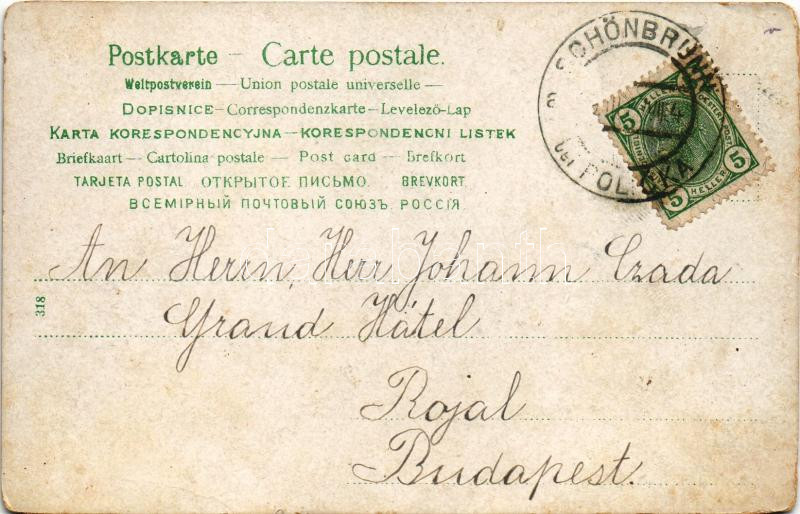 Postkarte – Carte postale.
Weltpostverein — Union postale universelle —
DOPISNICE – Correspondenzkarte – Levelező-Lap
KARTA KORESPONDENCYJNA – KORESPONDENCNI LISTEK
Briefkaart – Cartolina postale – Post card – Brefkort
TARJETA POSTAL ОТКРЫТОЕ ПИСЬМО. BREVKORT
ВСЕМІРНЫЙ ПОЧТОВЫЙ СОЮЗЪ. РОССІЯ.
SCHÖNBRUNN
bei POLIČKA
5 HELLER 5
5 HELLER
An Herrn, Herr Johann Czada
Grand Hátel
Rojal
Budapest.
318